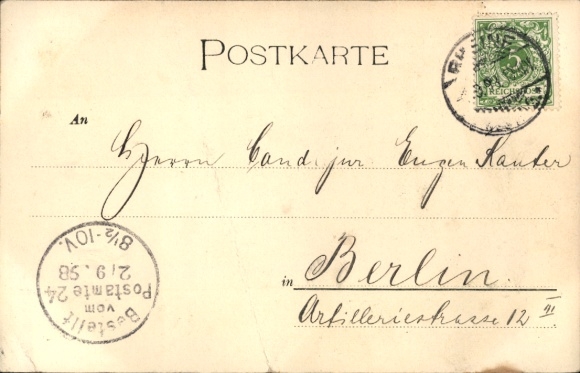 POSTKARTE
An
Herrn Cand. jur. Eugen Kanter
in Berlin.
Artilleriestrasse 12 III
5
REICHSPOST
Bestellt
vom
Postamte 24
2/9.98
8½-10V.